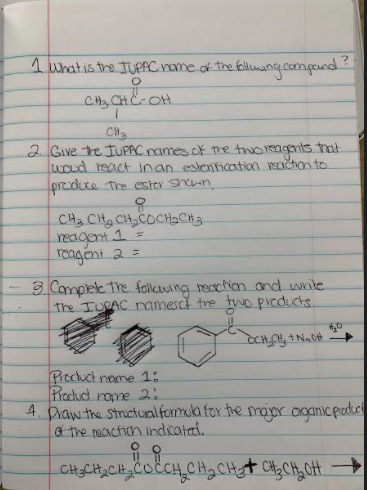 1. What is the IUPAC name of the following compound?
O
CH₃ CHC-OH
CH₃
2. Give the IUPAC names of the two reagents that
would react in an esterification reaction to
produce the ester shown.
O
CH₃ CH₂ CH₂COCH₂CH₃
reagent 1 =
reagent 2 =
3. Complete the following reaction and write
the IUPAC names of the two products.
O
C
OCH₂CH₃ + NaOH H₂O →
Product name 1:
Product name 2:
4. Draw the structural formula for the major organic product
of the reaction indicated.
O O
CH₃CH₂CH₂COCCH₂CH₂CH₃ + CH₃CH₂OH →